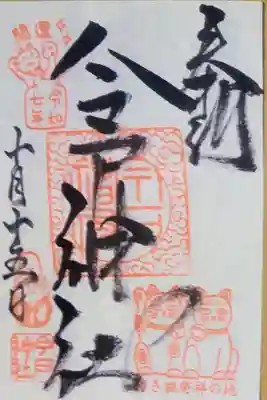 奉拝
今戸神社
十月十五日
開運
令和
七年
招き猫発祥の地